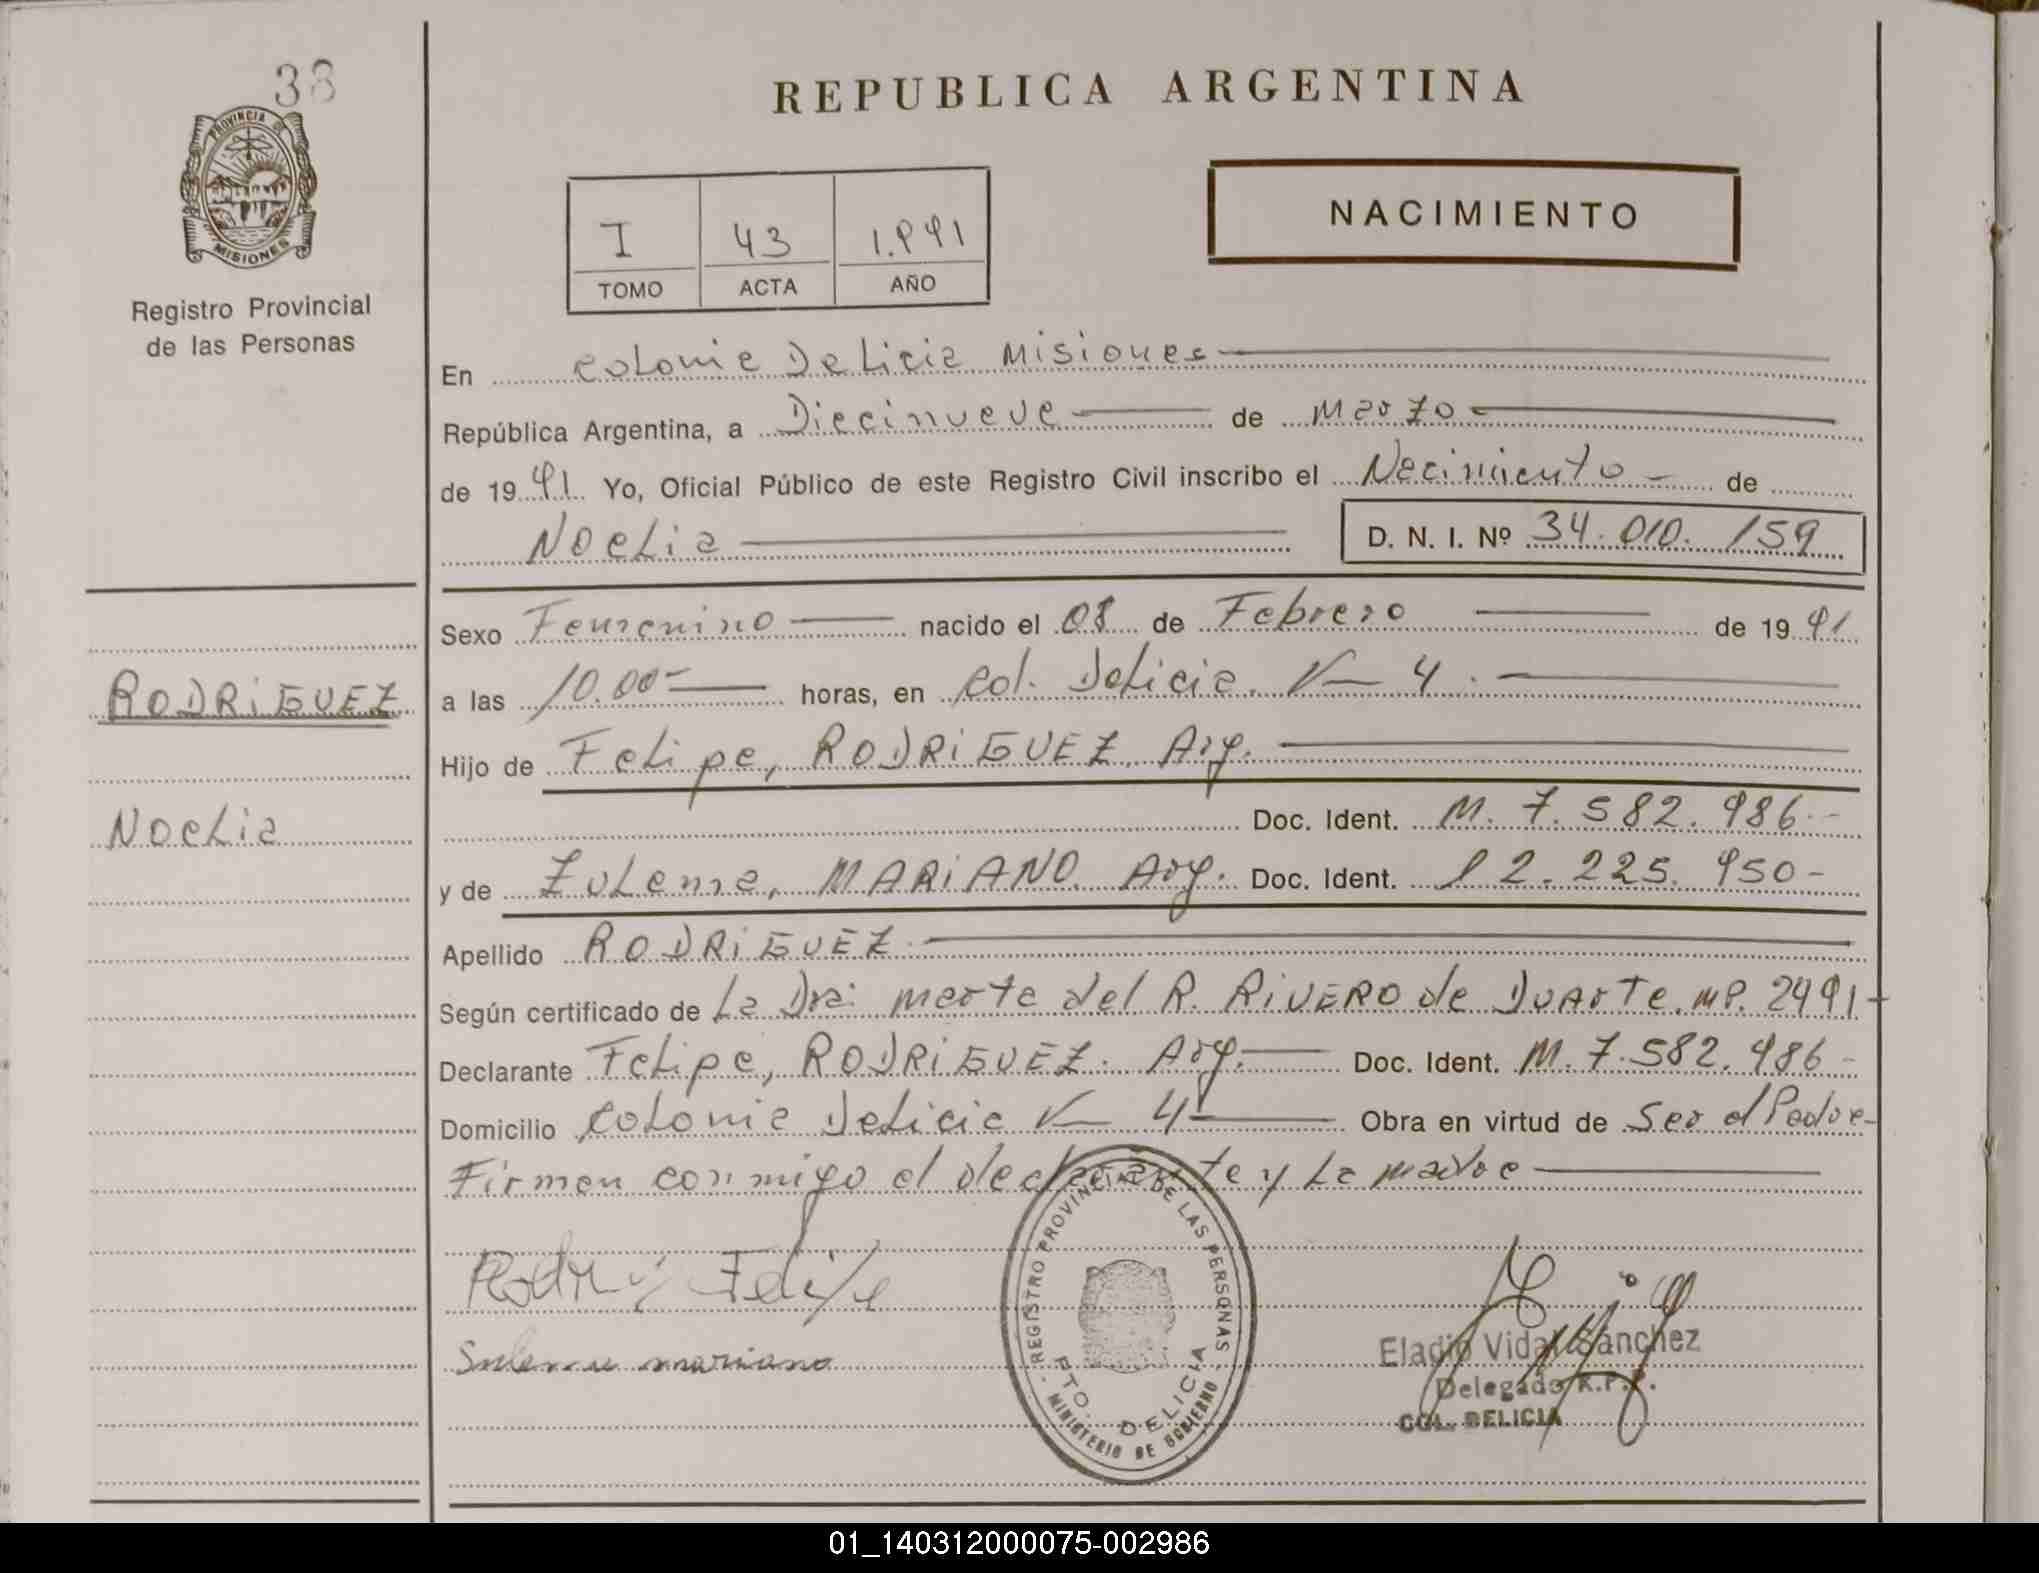 38
PROVINCIA DE
MISIONES
Registro Provincial
de las Personas
RODRIGUEZ
Noelia
REPUBLICA ARGENTINA
I 43 1.991
TOMO ACTA AÑO
NACIMIENTO
En Colonia Delicia Misiones
República Argentina, a Diecinueve de Marzo
de 1991 Yo, Oficial Público de este Registro Civil inscribo el Nacimiento de
Noelia D. N. I. Nº 34.010.159
Sexo Femenino nacido el 08 de Febrero de 1991
a las 10.00 horas, en Col. Delicia K 4.
Hijo de Felipe, RODRIGUEZ. Arg.
Doc. Ident. M. 7.582.986.-
y de Zulema, MARIANO. Arg. Doc. Ident. 12.225.950-
Apellido RODRIGUEZ.
Según certificado de La Dra: Marta del R. RIVERO de DUARTE. MP. 2991-
Declarante Felipe, RODRIGUEZ. Arg. Doc. Ident. M. 7.582.986-
Domicilio Colonia Delicia K 4 Obra en virtud de Ser el Padre-
Firman conmigo el declarante y La madre
Felipe
mariano
REGISTRO PROVINCIAL DE LAS PERSONAS
PTO. DELICIA
MINISTERIO DE GOBIERNO
Eladio Vidal Sánchez
Delegado R.P.P.
COL. DELICIA
01_140312000075-002986